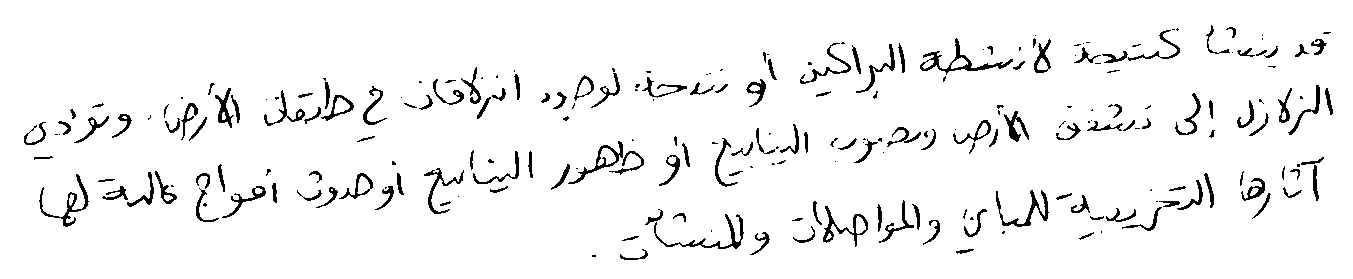 قد ينشأ كنتيجة لأنشطة البراكين أو نتيجة لوجود انزلاقات في طبقات الأرض. وتؤدي
الزلازل إلى تشقق الأرض ونضوب الينابيع أو ظهور الينابيع أو حدوث أمواج عالية لها
آثارها التخريبية للمباني والمواصلات وللمنشآت.